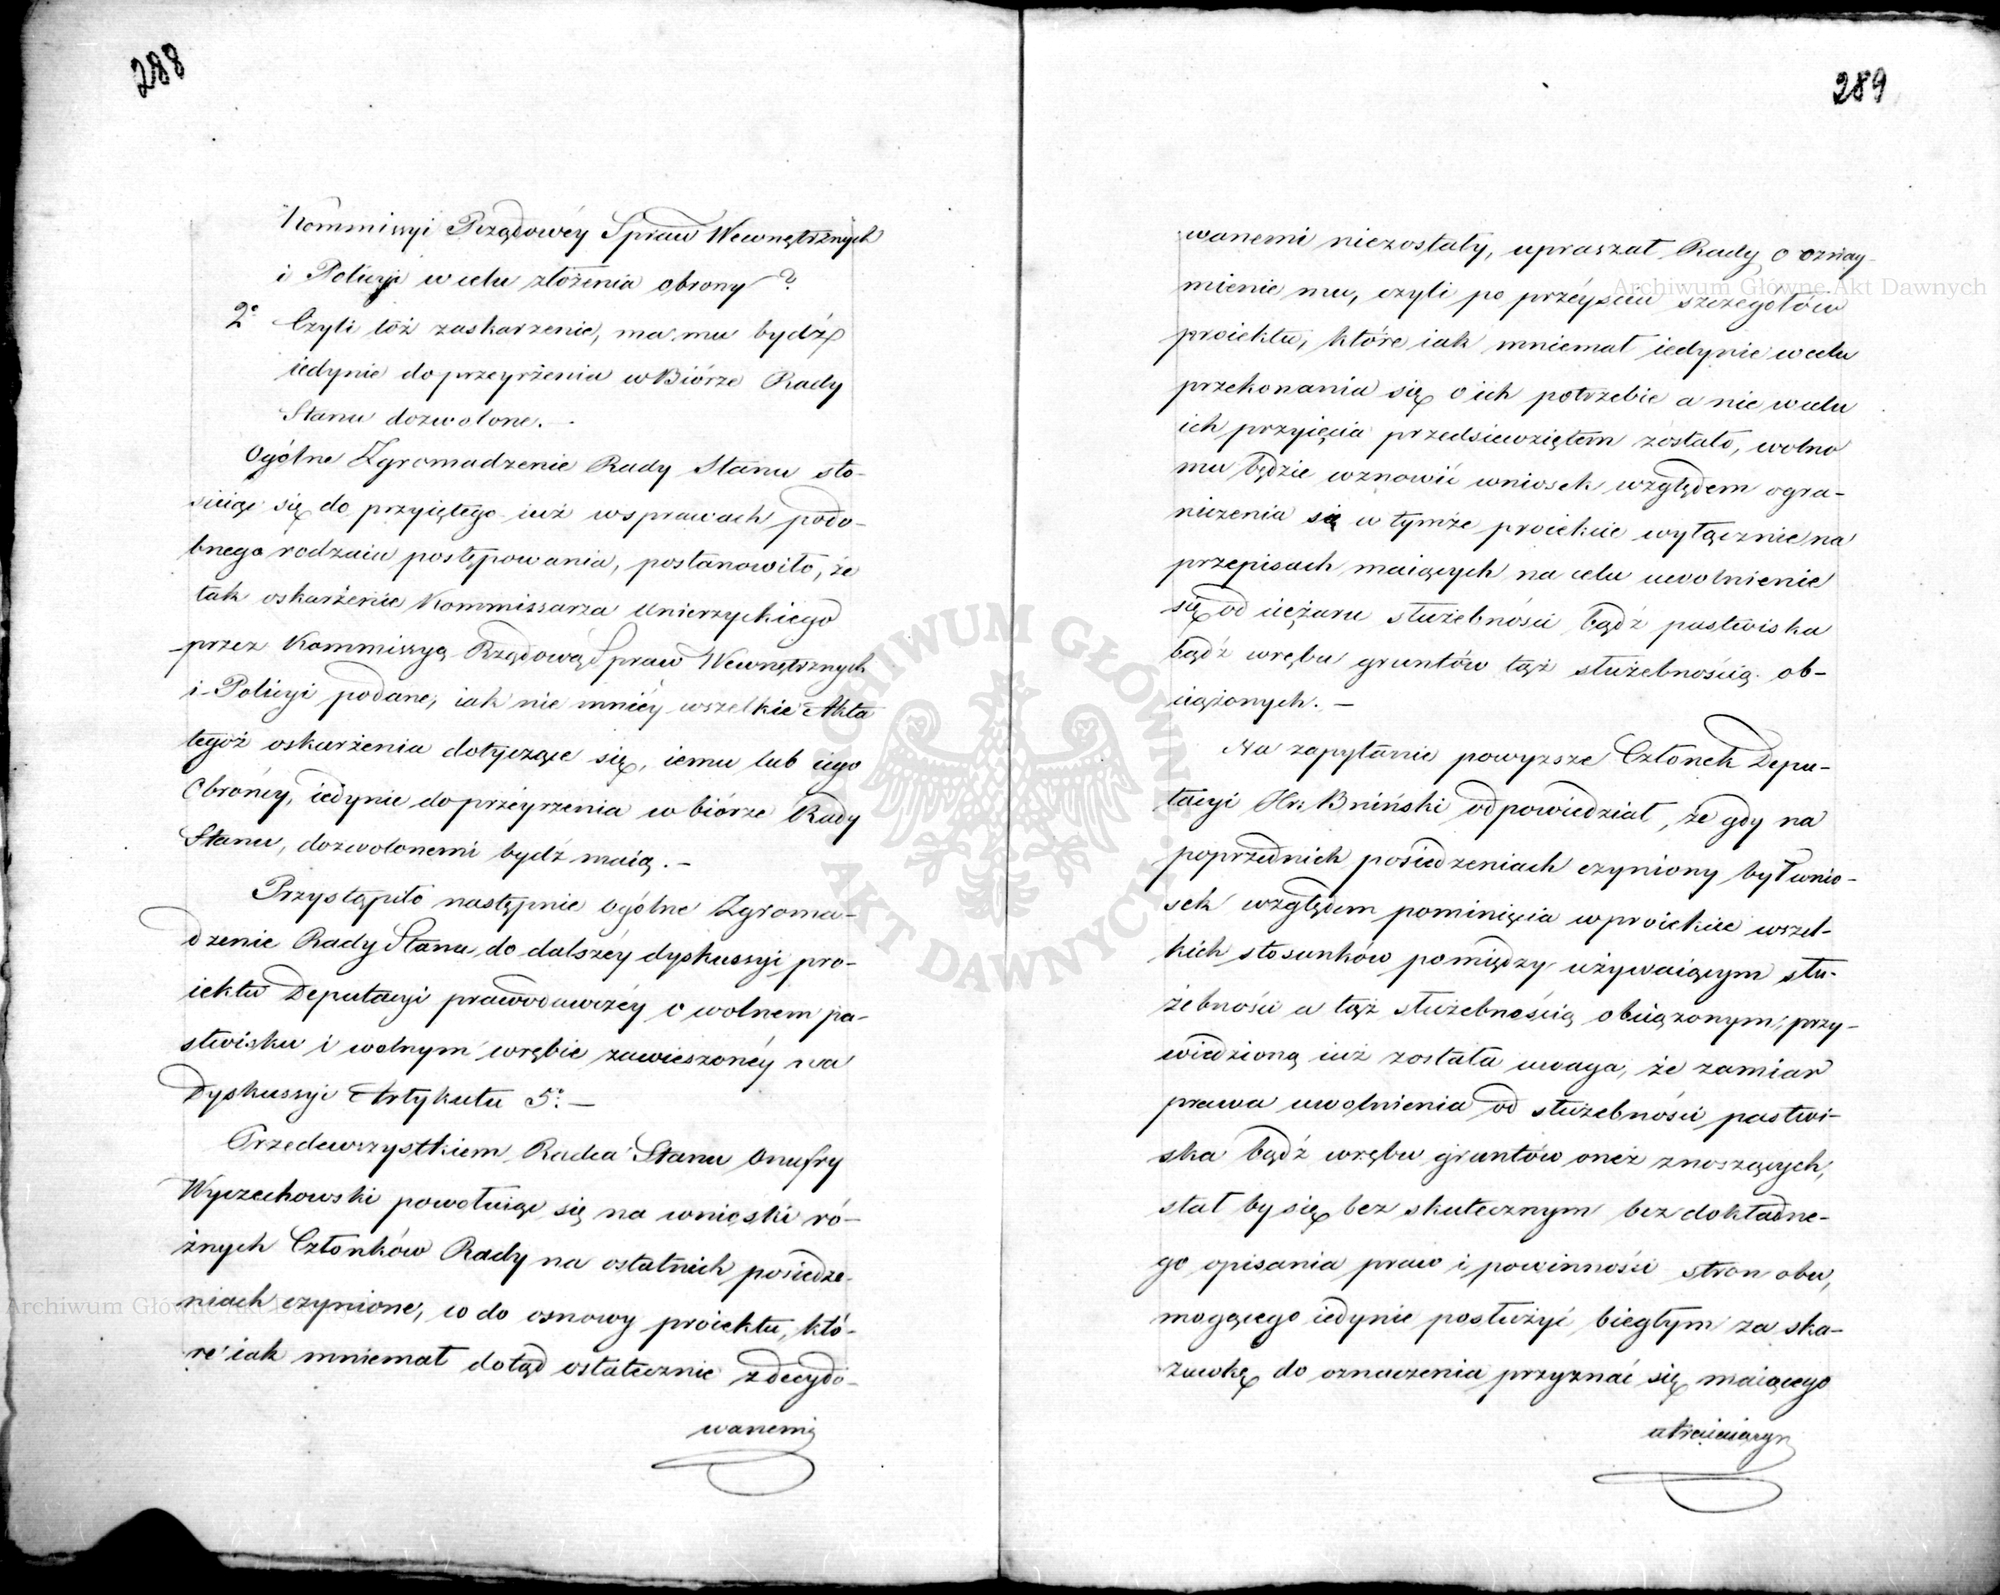 288
Kommissyi Rządowéy Spraw Wewnętrznych
i Policyi w celu złożenia obrony?
2° Czyli toż zaskarzenie, ma mu bydź
iedynie do przeyrżenia w Biórze Rady
Stanu dozwolone. —
Ogólne Zgromadzenie Rady Stanu sto-
suiąc się do przyiętego iuż w sprawach podo-
bnego rodzaiu postępowania, postanowiło, że
tak oskarżenie Kommissarza Unierzyckiego
przez Kommissyą Rządową Spraw Wewnętrznych
i Policyi podane, iak nie mniéy wszelkie Akta
tegoż oskarżenia dotyczące się, iemu lub iego
Obrońcy, iedynie do przéyrzenia w biórze Rady
Stanu, dozwolonemi bydź maią. —
Przystąpiło następnie Ogólne Zgroma-
dzenie Rady Stanu do dalszéy dyskussyi pro-
iektu Deputacyi prawodawczéy o wolnem pa-
stwisku i wolnym wrębie zawieszonéy na
Dyskussyi Artykułu 5°. —
Przedewszystkiem Radca Stanu Onufry
Wyczechowski powołuiąc się na wnioski ró-
żnych Członków Rady na ostatnich posiedze-
niach czynione, co do osnowy proiektu, któ-
re iak mniemał dotąd ostatecznie zdecydo-
wanemi
289
wanemi niezostały, upraszał Rady o oznay-
mienie mu, czyli po przéyściu szczegółów
proiektu, które iak mniemał iedynie w celu
przekonania się o ich potrzebie a nie w celu
ich przyięcia przedsiewziętem zostało, wolno
mu będzie wznowić wniosek względem ogra-
niczenia się w tymże proiekcie wyłącznie na
przepisach maiących na celu uwolnienie
się od ciężaru służebności bądź pastwiska
bądź wrębu gruntów tąż służebnością ob-
ciążonych. —
Na zapytanie powyższe Członek Depu-
tacyi Hr. Bniński odpowiedział, że gdy na
poprzednich posiedzeniach czyniony był wnio-
sek względem pominięcia w proiekcie wszel-
kich stosunków pomiędzy używaiącym słu-
żebności a tąż służebnością obciążonym, przy-
wiedzioną iuż została uwaga, że zamiar
prawa uwolnienia od służebności pastwi-
ska bądź wrębu gruntów oneż znoszących,
stał by się bezskutecznym bez dokładne-
go opisania praw i powinności stron obu,
mogącego iedynie posłużyć biegłym za ska-
zówkę do oznaczenia przyznać się maiącego
Archiwum Główne Akt Dawnych
Archiwum Główne Akt Dawnych
ARCHIWUM GŁÓWNE AKT DAWNYCH